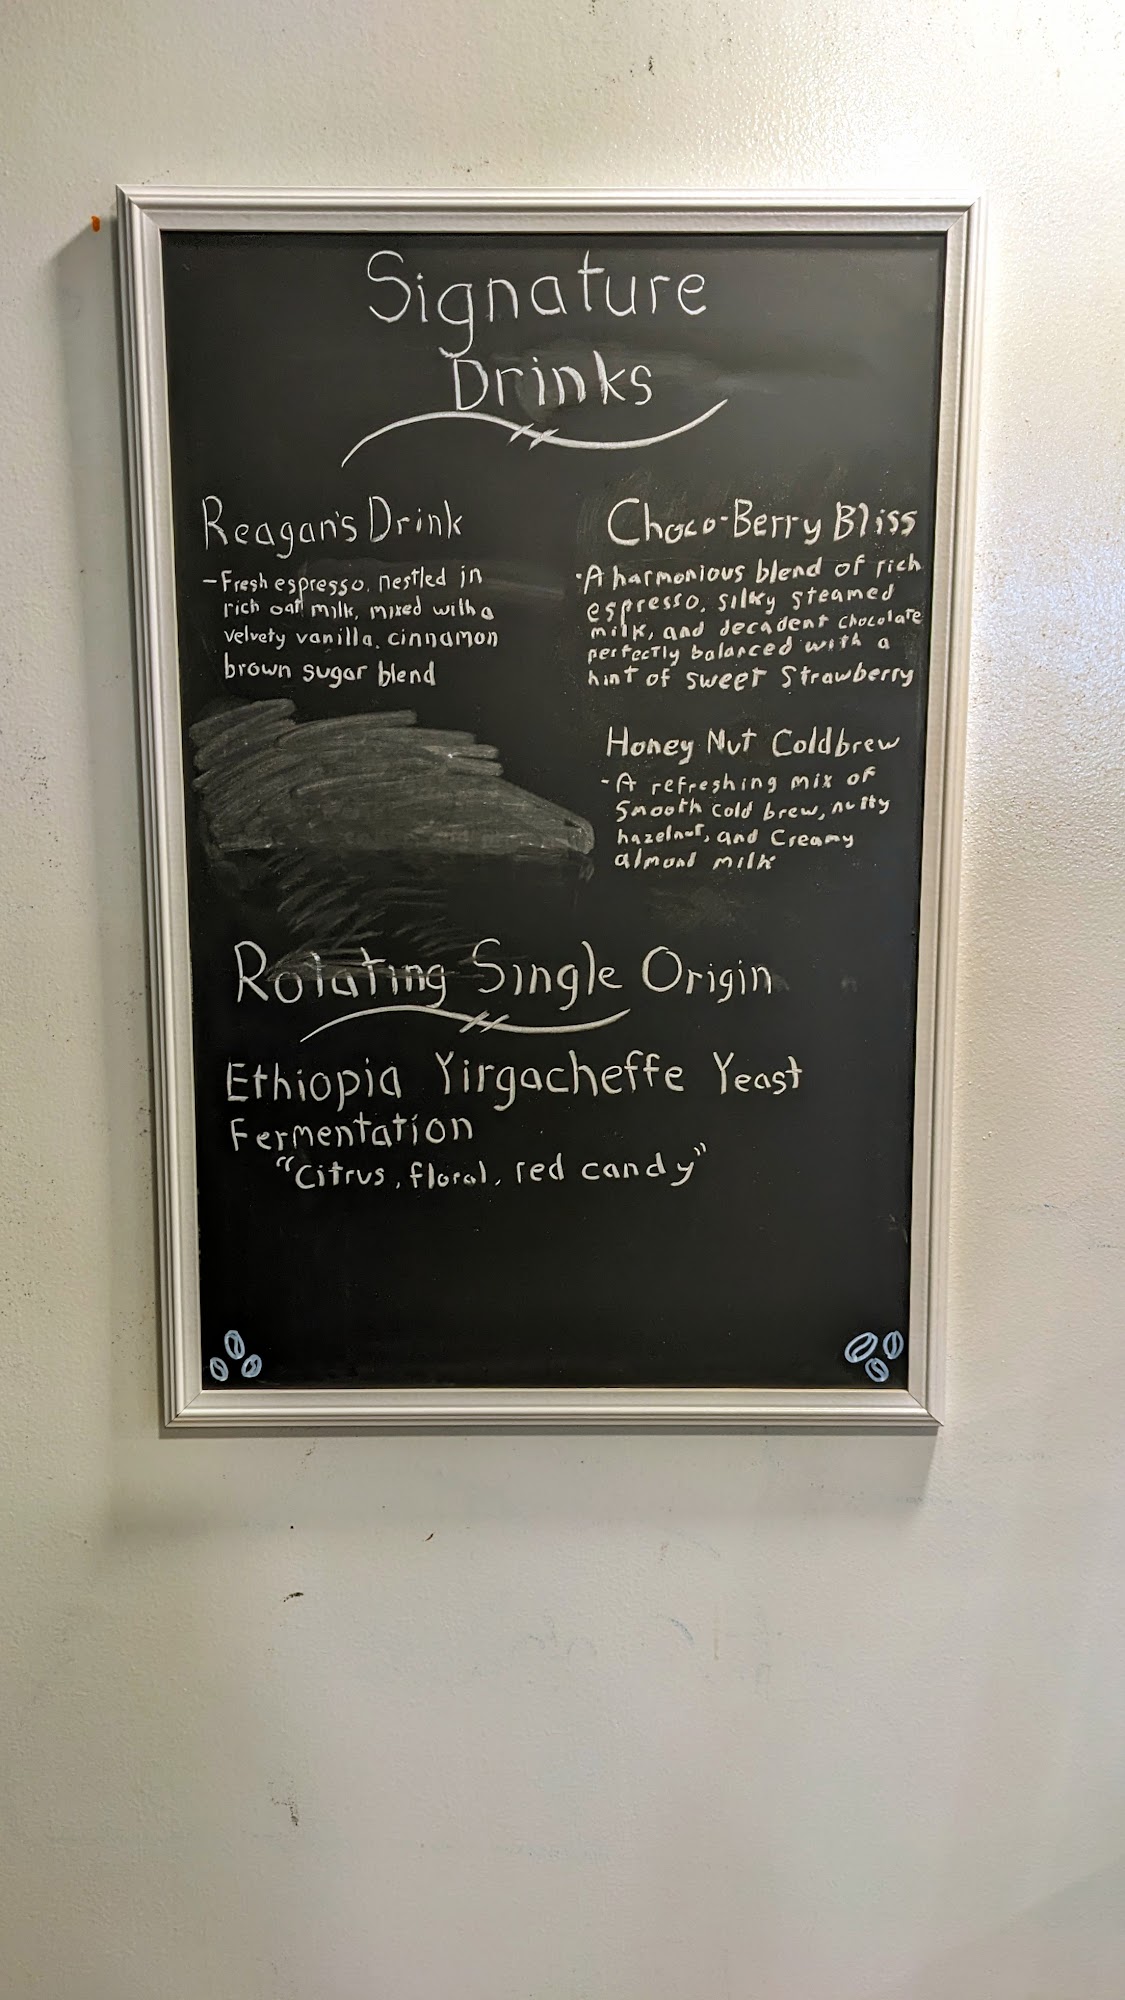 Signature
Drinks
Reagan's Drink
-Fresh espresso, nestled in
rich oat milk, mixed with a
velvety vanilla, cinnamon
brown sugar blend
Choco-Berry Bliss
-A harmonious blend of rich
espresso, silky steamed
milk, and decadent chocolate
perfectly balanced with a
hint of sweet strawberry
Honey Nut Coldbrew
-A refreshing mix of
smooth cold brew, nutty
hazelnut, and creamy
almond milk
Rotating Single Origin
Ethiopia Yirgacheffe Yeast
Fermentation
"Citrus, floral, red candy"